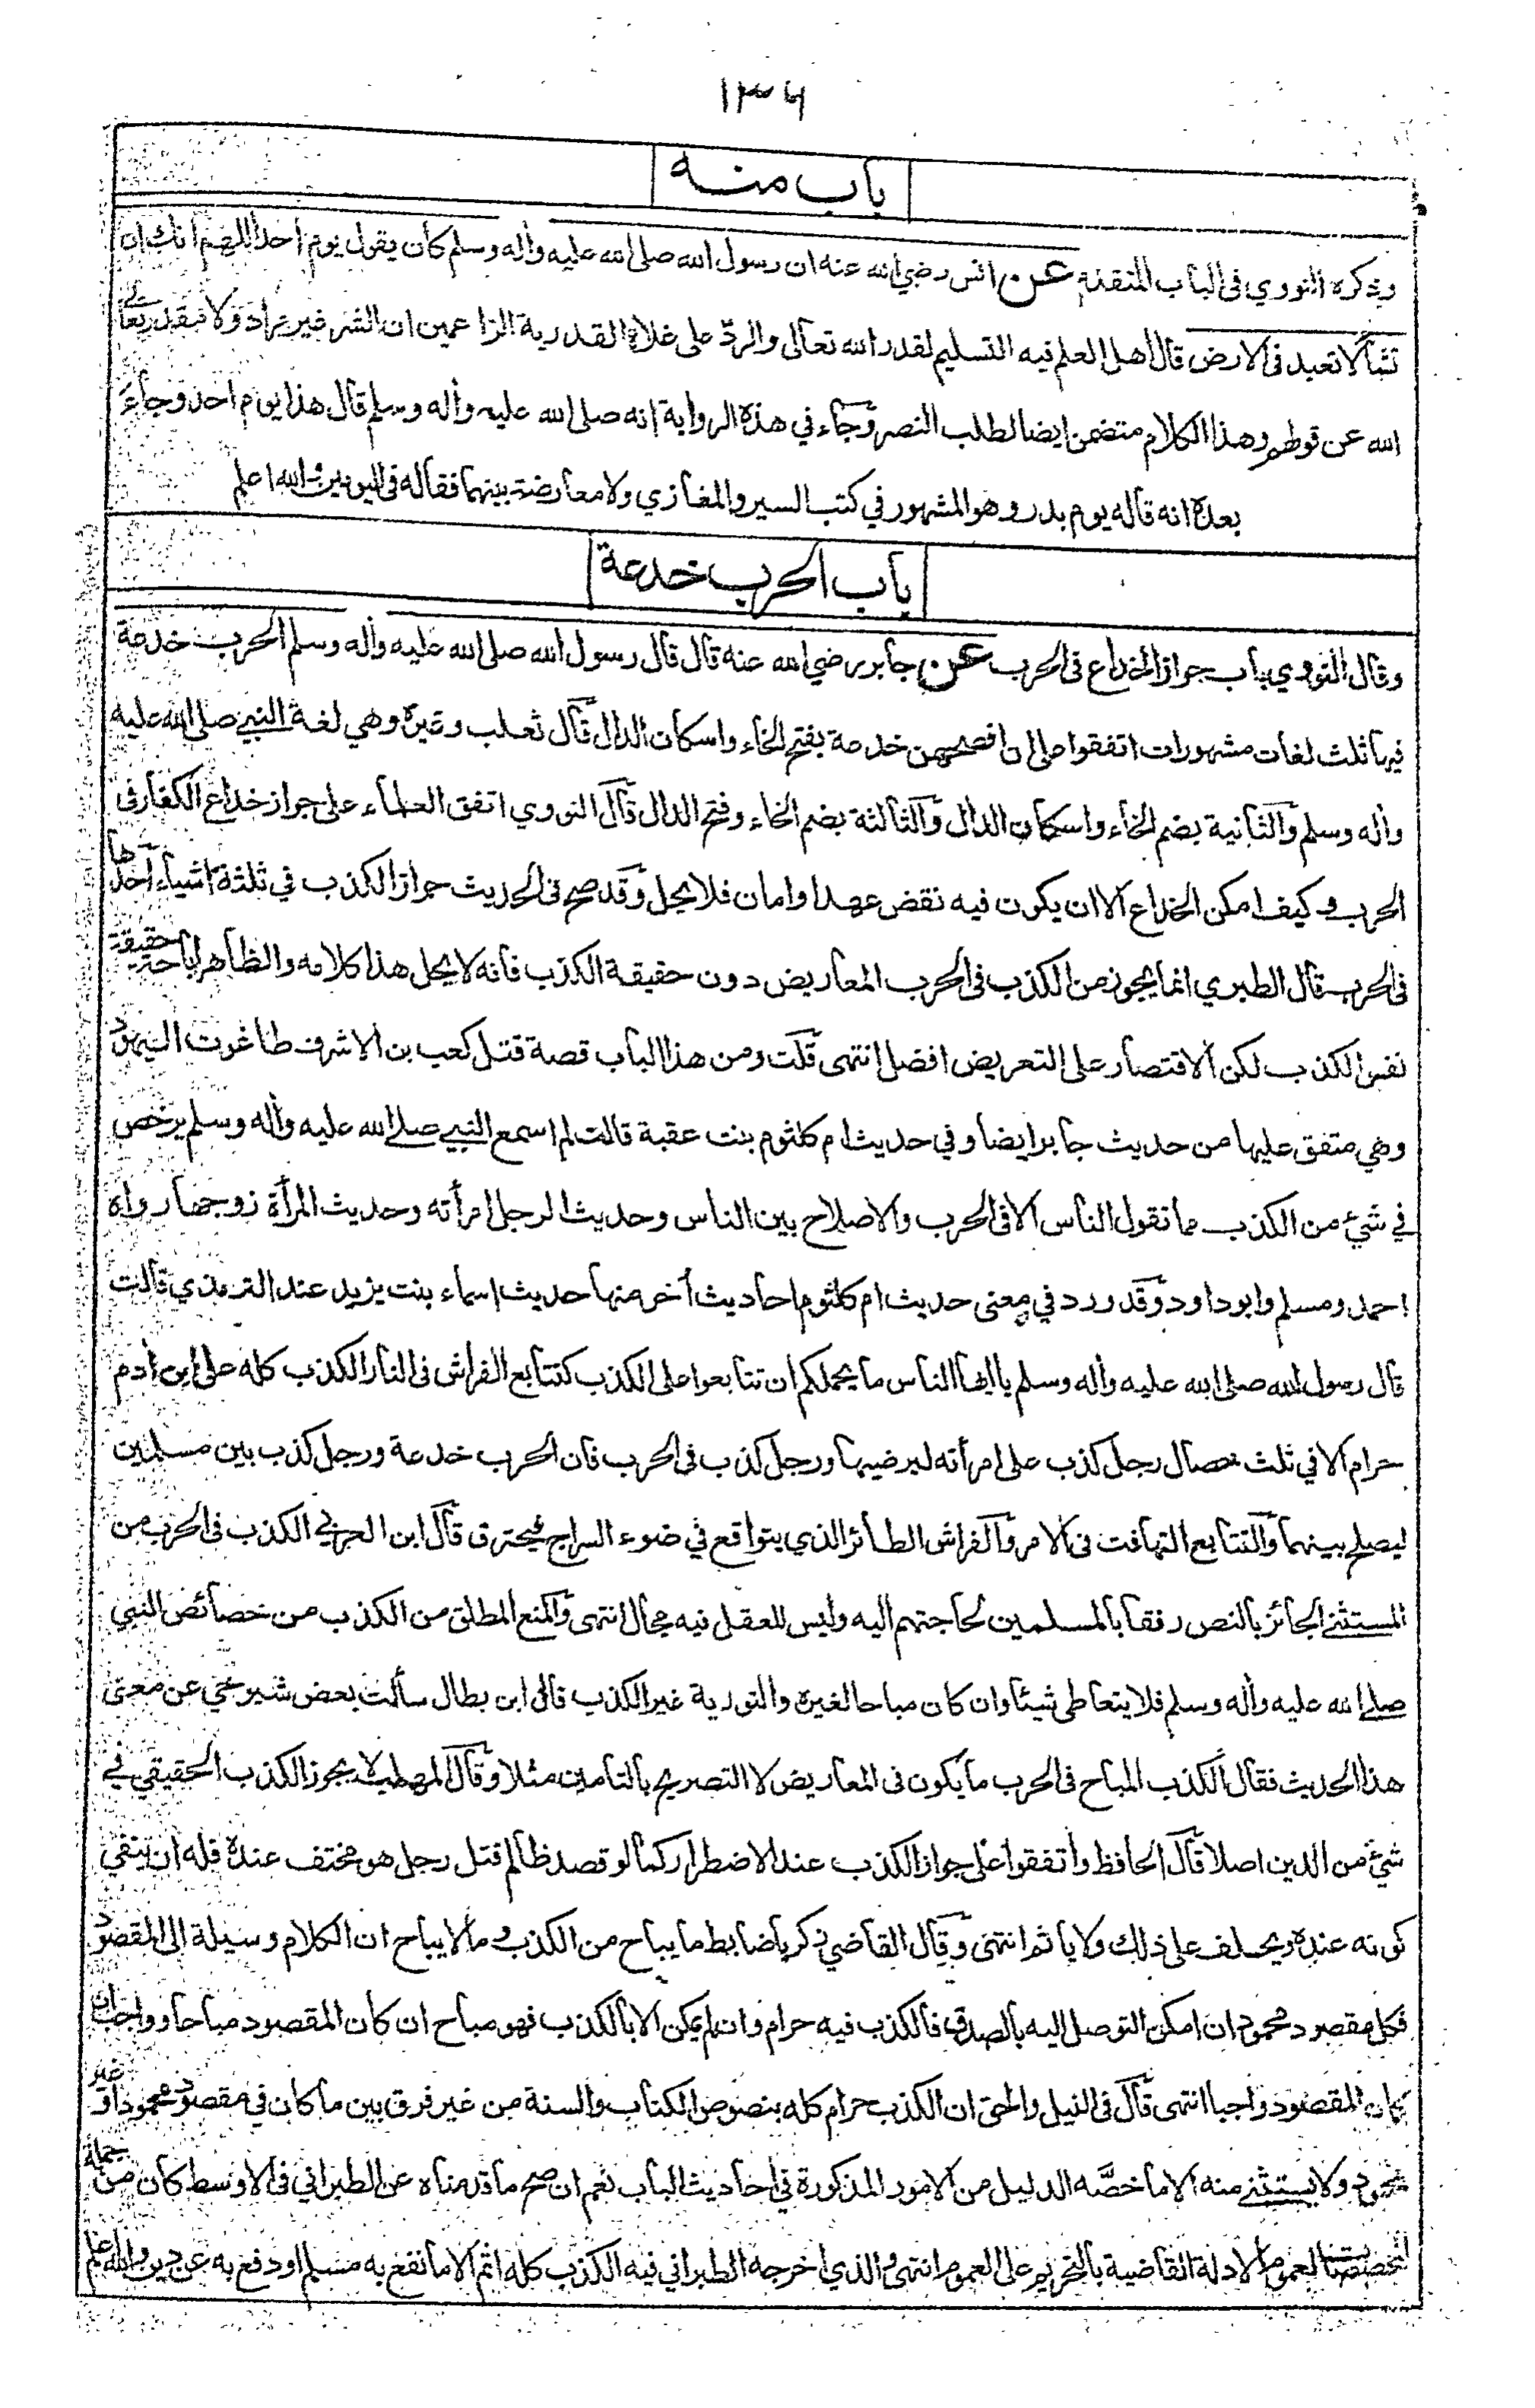 ١٣٦
باب منه
وذكره النووي فى الباب المتقدم عن انس رضي الله عنه ان رسول الله صلى الله عليه وأله وسلم كان يقول يوم احد اللهم انك ان
تشأ لا تعبد فى الارض قال اهل العلم فيه التسليم لقدر الله تعالى والرد على غلاة القدرية الزاعمين ان الشر غير مراد ولا مقدر تعالى
الله عن قولهم وهذا الكلام متضمن ايضا لطلب النصر وجاء في هذه الرواية انه صلى الله عليه وأله وسلم قال هذا يوم احد وجاء
بعده انه قاله يوم بدر وهو المشهور في كتب السير والمغازي ولا معارضة بينهما فقاله فى اليومين والله اعلم
باب الحرب خدعة
وقال النووي باب جواز الخداع فى الحرب عن جابر رضي الله عنه قال قال رسول الله صلى الله عليه وأله وسلم الحرب خدعة
فيها ثلث لغات مشهورات اتفقوا على ان افصحهن خدعة بفتح الخاء واسكان الدال قال ثعلب وغيره وهي لغة النبي صلى الله عليه
وأله وسلم والثانية بضم الخاء واسكان الدال والثالثة بضم الخاء وفتح الدال قال النووي اتفق العلماء على جواز خداع الكفار فى
الحرب وكيف امكن الخداع الا ان يكون فيه نقض عهد او امان فلا يحل وقد صح فى الحديث جواز الكذب في ثلثة اشياء احدها
فى الحرب قال الطبري انما يجوز من الكذب فى الحرب المعاريض دون حقيقة الكذب فانه لا يحل هذا كلامه والظاهر اباحة حقيقة
نفس الكذب لكن الاقتصار على التعريض افضل انتهى قلت ومن هذا الباب قصة قتل كعب بن الاشرف طاغوت اليهود
وهي متفق عليها من حديث جابر ايضا وفي حديث ام كلثوم بنت عقبة قالت لم اسمع النبي صلى الله عليه وأله وسلم يرخص
في شيء من الكذب مما تقول الناس الا فى الحرب والاصلاح بين الناس وحديث الرجل امرأته وحديث المرأة زوجها رواه
احمد ومسلم وابو داود وقد ورد في معنى حديث ام كلثوم احاديث أخر منها حديث اسماء بنت يزيد عند الترمذي قالت
قال رسول الله صلى الله عليه وأله وسلم يا ايها الناس ما يحملكم ان تتابعوا على الكذب كتتابع الفراش فى النار الكذب كله على ابن أدم
حرام الا في ثلث خصال رجل كذب على امرأته ليرضيها ورجل كذب فى الحرب فان الحرب خدعة ورجل كذب بين مسلمين
ليصلح بينهما والتتابع التهافت فى الامر والفراش الطائر الذي يتواقع في ضوء السراج فيحترق قال ابن العربي الكذب فى الحرب من
المستثنى الجائز بالنص رفقا بالمسلمين لحاجتهم اليه وليس للعقل فيه مجال انتهى والمنع المطلق من الكذب من خصائص النبي
صلى الله عليه وأله وسلم فلا يتعاطى شيئا وان كان مباحا لغيره والتورية غير الكذب قال ابن بطال سألت بعض شيوخي عن معنى
هذا الحديث فقال الكذب المباح فى الحرب ما يكون فى المعاريض لا التصريح بالتأمين مثلا وقال المهلب لا يجوز الكذب الحقيقي في
شيء من الدين اصلا قال الحافظ واتفقوا على جواز الكذب عند الاضطرار كما لو قصد ظالم قتل رجل هو مختف عنده فله ان ينفي
كونه عنده ويحلف على ذلك ولا ياثم انتهى وقال القاضي زكريا ضابط ما يباح من الكذب وما لا يباح ان الكلام وسيلة الى المقصود
فكل مقصود محمود ان امكن التوصل اليه بالصدق فالكذب فيه حرام وان لم يمكن الا بالكذب فهو مباح ان كان المقصود مباحا وواجب ان
كان المقصود واجبا انتهى قال فى النيل والحق ان الكذب حرام كله بنصوص الكتاب والسنة من غير فرق بين ما كان في مقصود محمود او غير
محمود ولا يستثنى منه الا ما خصه الدليل من الامور المذكورة في احاديث الباب نعم ان صح ما قدمناه عن الطبراني فى الاوسط كان من جملة
المخصصات لعموم الادلة القاضية بالتحريم على العموم انتهى والذي اخرجه الطبراني فيه الكذب كله اثم الا ما نفع به مسلم او دفع به عن دين والله اعلم